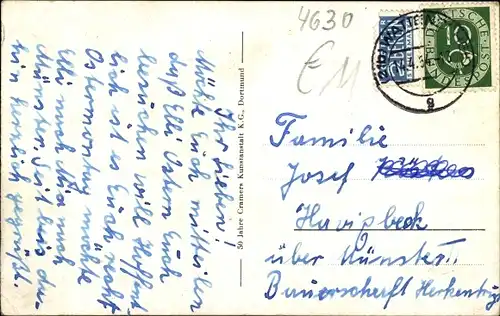 4630
Ihr Lieben!
Möchte Euch mitteilen
daß Elli Ostern Euch
besuchen will. Hoffent-
lich ist es Euch recht
Ostermontag möchte
Elli nach
Münster. Seid bis da-
hin herzlich gegrüßt.
50 Jahre Cramers Kunstanstalt K.G., Dortmund
DEUTSCHE
10
Familie
Josef
Havixbeck
über Münster
Bauerschaft Herkentrup